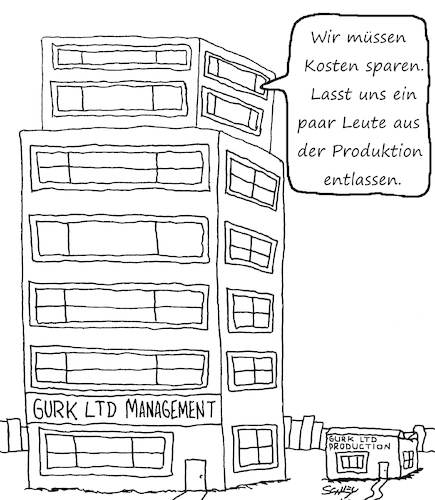 Wir müssen
Kosten sparen.
Lasst uns ein
paar Leute aus
der Produktion
entlassen.
GURK LTD MANAGEMENT
GURK LTD
PRODUCTION